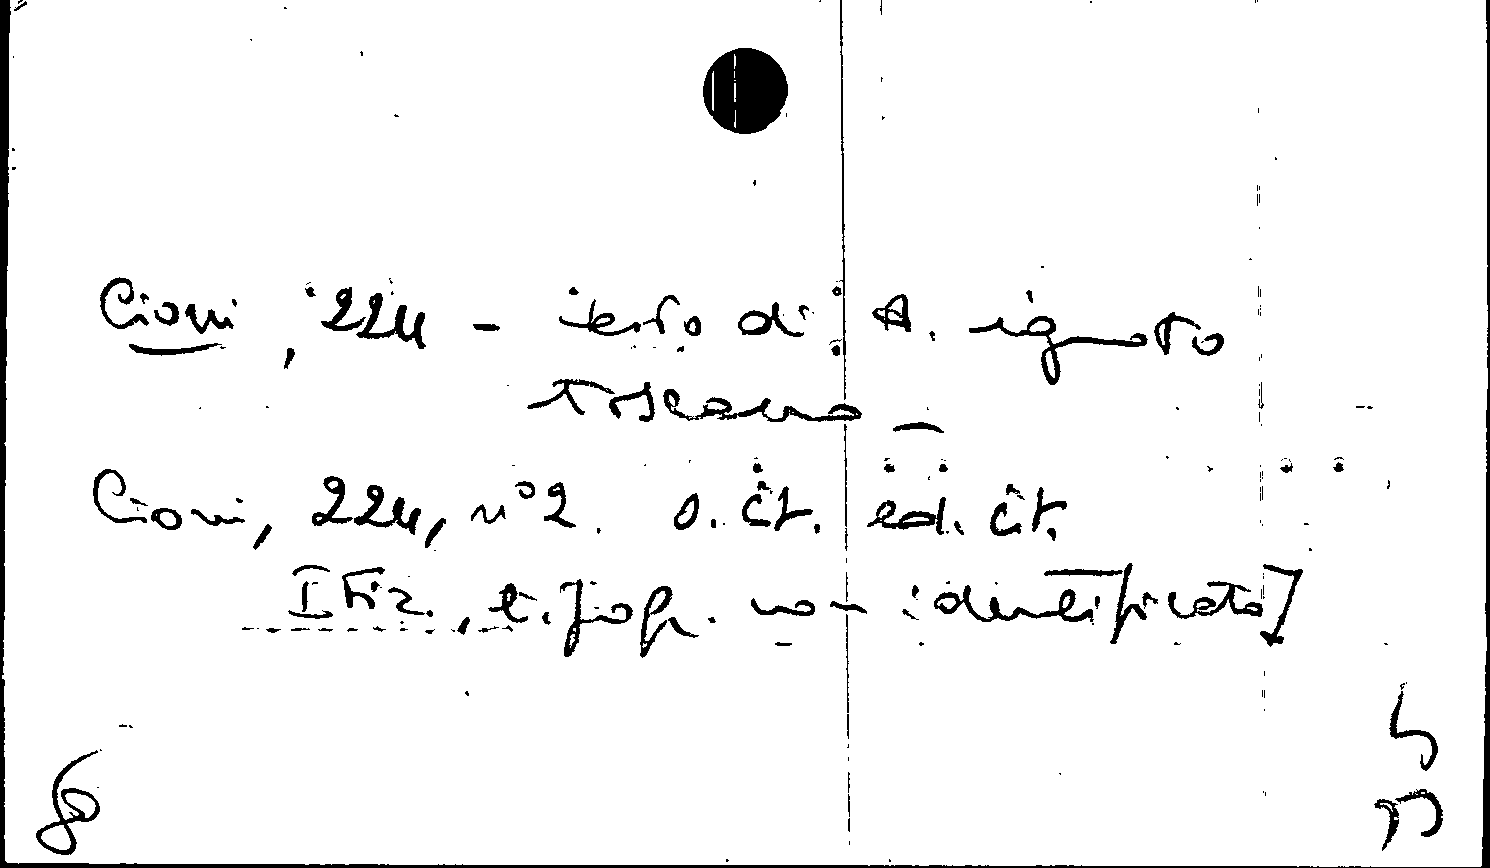 Cioni, 224 - testo di A. ignoto
toscano
Cioni, 224, n°2. o. cit. ed. cit.
[Fir., tipogr. non identificato]